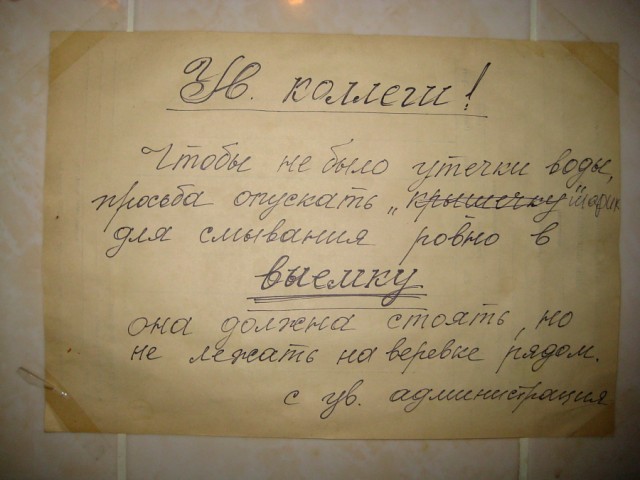 Ув. коллеги!
Чтобы не было утечки воды,
просьба опускать „крышечку" шарик
для смывания ровно в
выемку
она должна стоять, но
не лежать на веревке рядом.
с ув. администрация